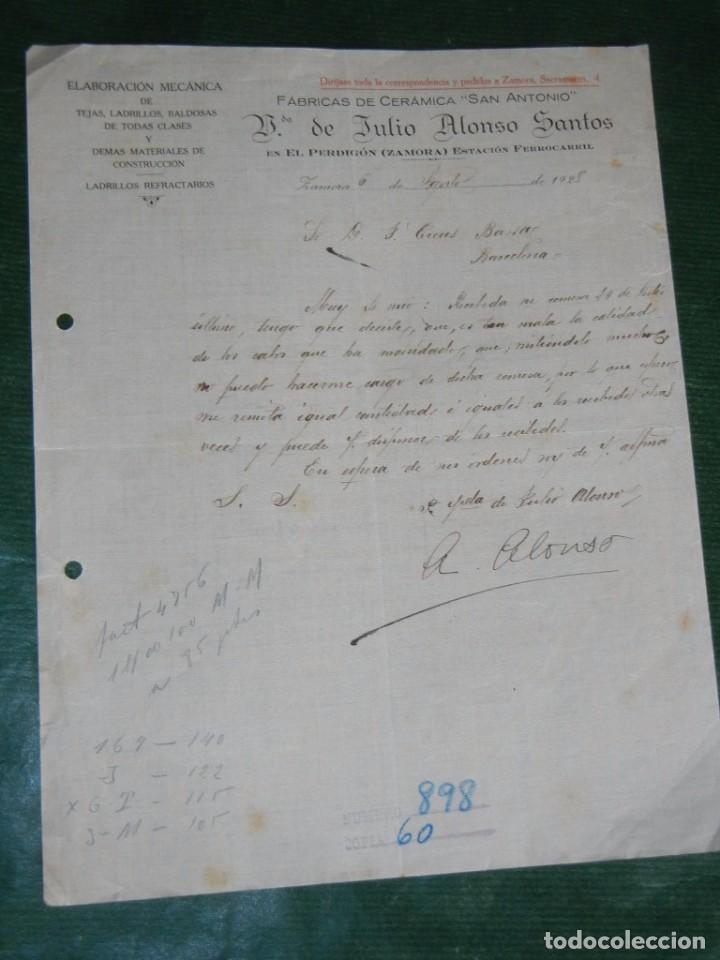 Diríjase toda la correspondencia y pedidos a Zamora, Sacramento, 4
ELABORACIÓN MECÁNICA
DE
TEJAS, LADRILLOS, BALDOSAS
DE TODAS CLASES
Y
DEMAS MATERIALES DE
CONSTRUCCIÓN
LADRILLOS REFRACTARIOS
FÁBRICAS DE CERÁMICA "SAN ANTONIO"
V.da de Julio Alonso Santos
EN EL PERDIGÓN (ZAMORA) ESTACIÓN FERROCARRIL
Zamora 6 de Agosto de 1928
Sr D. F. Bassa
Barcelona
Muy Sr mio: Recibida su remesa 29 de Julio
último, tengo que decirle, que, es tan mala la calidad
de los que ha mandado, que; sintiéndolo mucho
no puedo hacerme cargo de dicha remesa, por lo que espero
me remita igual cantidad é iguales á los recibidos otras
veces y puede V. disponer de los recibidos.
En espera de sus órdenes es de V. affma
S. S.
Vda de Julio Alonso
A. Alonso
fact 4256
100 M-M
a 95 ptas
169 - 140
J - 122
x G T - 115
J-M - 105
NUMERO 898
COPIA 60
todocoleccion
todocoleccion.net